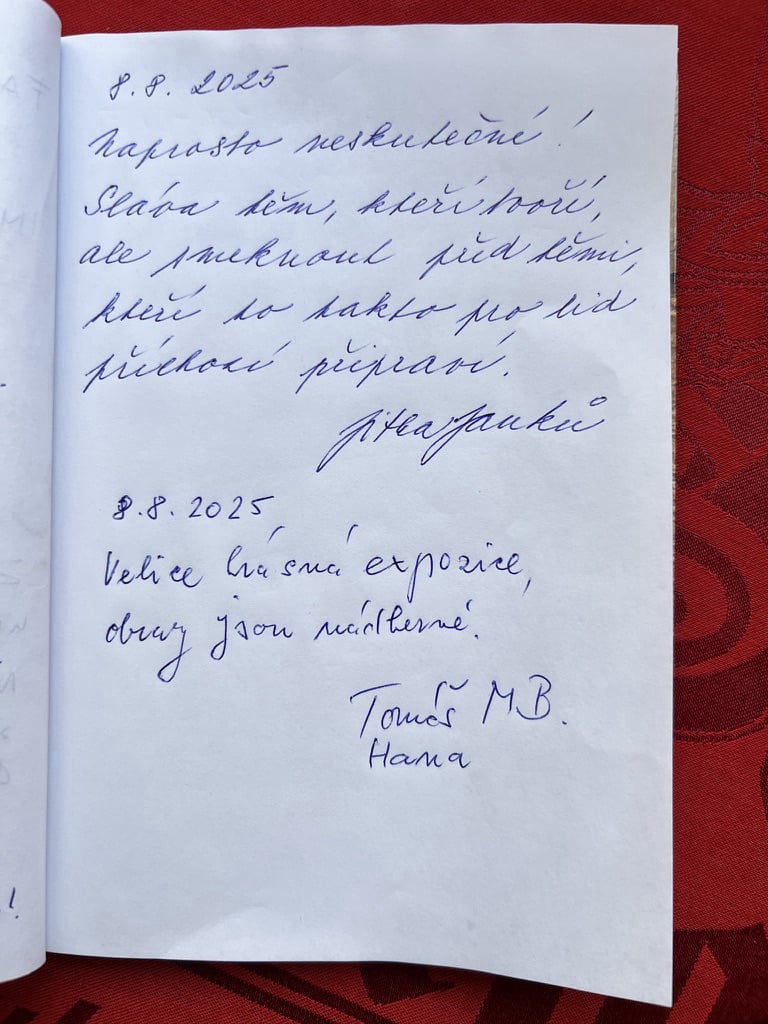 8.8. 2025
Naprosto neskutečné!
Sláva těm, kteří tvoří,
ale smeknout před těmi,
kteří to takto pro lid
příchozí připraví.
Jitka Janků
8.8.2025
Velice krásná expozice,
obrazy jsou nádherné.
Tomáš M B.
Hana